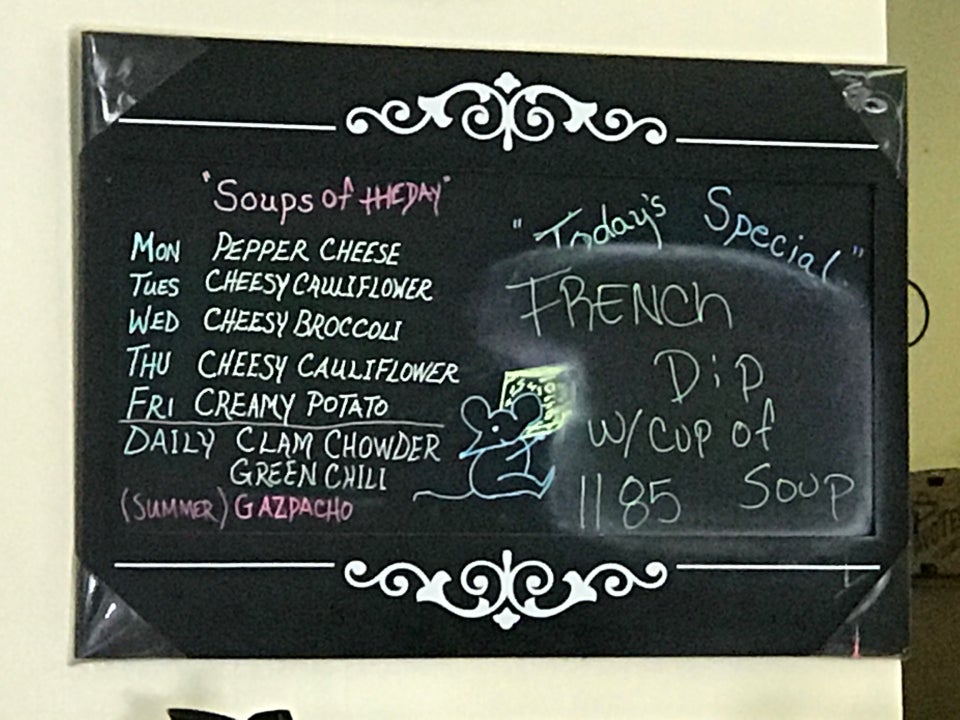 "Soups of THE DAY"
MON PEPPER CHEESE
TUES CHEESY CAULIFLOWER
WED CHEESY BROCCOLI
THU CHEESY CAULIFLOWER
FRI CREAMY POTATO
DAILY CLAM CHOWDER
GREEN CHILI
(SUMMER) GAZPACHO
"Today's Special"
FRENCh
DiP
W/CUP of
1185 SouP